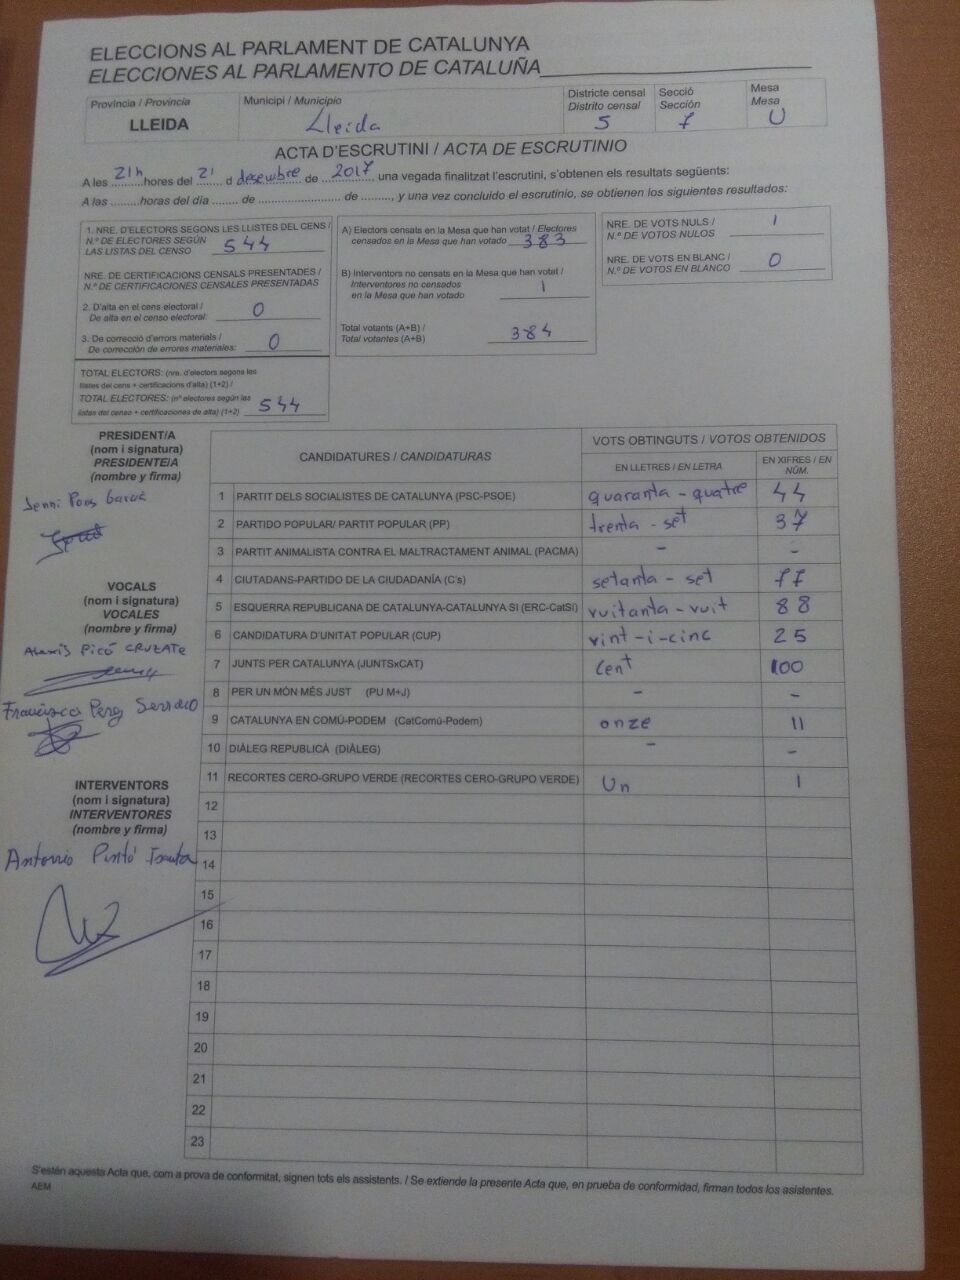 ELECCIONS AL PARLAMENT DE CATALUNYA
ELECCIONES AL PARLAMENTO DE CATALUÑA
Província / Provincia
LLEIDA
Municipi / Municipio
Lleida
Districte censal
Distrito censal
5
Secció
Sección
7
Mesa
Mesa
U
ACTA D'ESCRUTINI / ACTA DE ESCRUTINIO
A les 21h hores del 21 d desembre de 2017 una vegada finalitzat l'escrutini, s'obtenen els resultats següents:
A las ......... horas del día ........ de ......................... de ........., y una vez concluido el escrutinio, se obtienen los siguientes resultados:
1. NRE. D'ELECTORS SEGONS LES LLISTES DEL CENS /
N.º DE ELECTORES SEGÚN
LAS LISTAS DEL CENSO 544
NRE. DE CERTIFICACIONS CENSALS PRESENTADES /
N.º DE CERTIFICACIONES CENSALES PRESENTADAS
2. D'alta en el cens electoral /
De alta en el censo electoral: 0
3. De correcció d'errors materials /
De corrección de errores materiales: 0
TOTAL ELECTORS: (nre. d'electors segons les
llistes del cens + certificacions d'alta) (1+2) /
TOTAL ELECTORES: (nº electores según las
listas del censo + certificaciones de alta) (1+2) 544
A) Electors censats en la Mesa que han votat / Electores
censados en la Mesa que han votado 383
B) Interventors no censats en la Mesa que han votat /
Interventores no censados
en la Mesa que han votado 1
Total votants (A+B) /
Total votantes (A+B) 384
NRE. DE VOTS NULS /
N.º DE VOTOS NULOS 1
NRE. DE VOTS EN BLANC /
N.º DE VOTOS EN BLANCO 0
PRESIDENT/A
(nom i signatura)
PRESIDENTE/A
(nombre y firma)
Jenni Pons García
VOCALS
(nom i signatura)
VOCALES
(nombre y firma)
Alexis Picó CRUZATE
Francisca Perez Serrano
INTERVENTORS
(nom i signatura)
INTERVENTORES
(nombre y firma)
Antonio Pintó
CANDIDATURES / CANDIDATURAS
VOTS OBTINGUTS / VOTOS OBTENIDOS
EN LLETRES / EN LETRA
EN XIFRES / EN NÚM.
1 PARTIT DELS SOCIALISTES DE CATALUNYA (PSC-PSOE) quaranta - quatre 44
2 PARTIDO POPULAR/ PARTIT POPULAR (PP) trenta - set 37
3 PARTIT ANIMALISTA CONTRA EL MALTRACTAMENT ANIMAL (PACMA) - -
4 CIUTADANS-PARTIDO DE LA CIUDADANÍA (C's) setanta - set 77
5 ESQUERRA REPUBLICANA DE CATALUNYA-CATALUNYA SI (ERC-CatSí) vuitanta - vuit 88
6 CANDIDATURA D'UNITAT POPULAR (CUP) vint-i-cinc 25
7 JUNTS PER CATALUNYA (JUNTSxCAT) Cent 100
8 PER UN MÓN MÉS JUST (PU M+J) - -
9 CATALUNYA EN COMÚ-PODEM (CatComú-Podem) onze 11
10 DIÀLEG REPUBLICÀ (DIÀLEG) - -
11 RECORTES CERO-GRUPO VERDE (RECORTES CERO-GRUPO VERDE) Un 1
12
13
14
15
16
17
18
19
20
21
22
23
S'estén aquesta Acta que, com a prova de conformitat, signen tots els assistents. / Se extiende la presente Acta que, en prueba de conformidad, firman todos los asistentes.
AEM